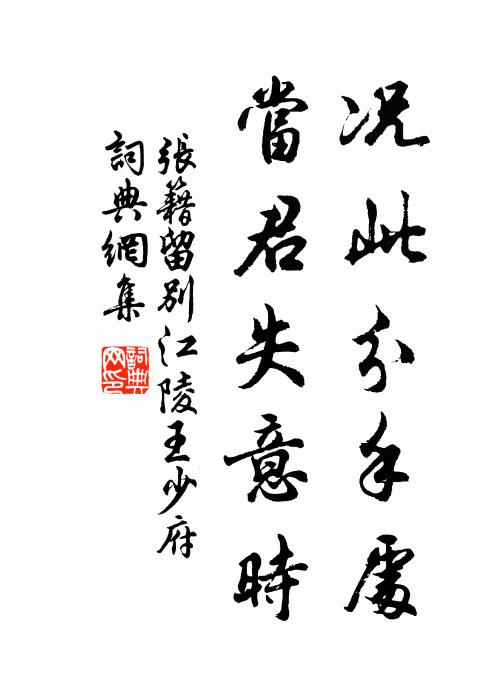 况此分手處
當君失意時
張籍留别江陵王少府
詞典網集
詞典网印